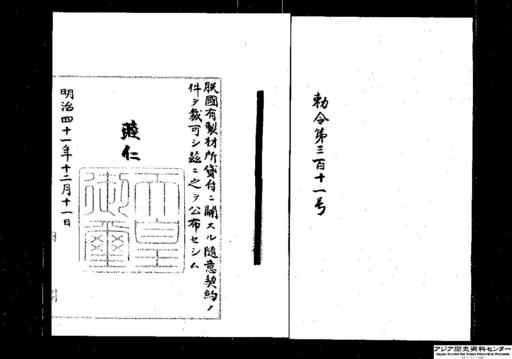 勅令第三百十一号
朕國有製材所貸付ニ關スル隨意契約ノ
件ヲ裁可シ茲ニ之ヲ公布セシム
睦仁
天皇
御璽
明治四十一年十二月十一日
アジア歴史資料センター
Japan Center for Asian Historical Records